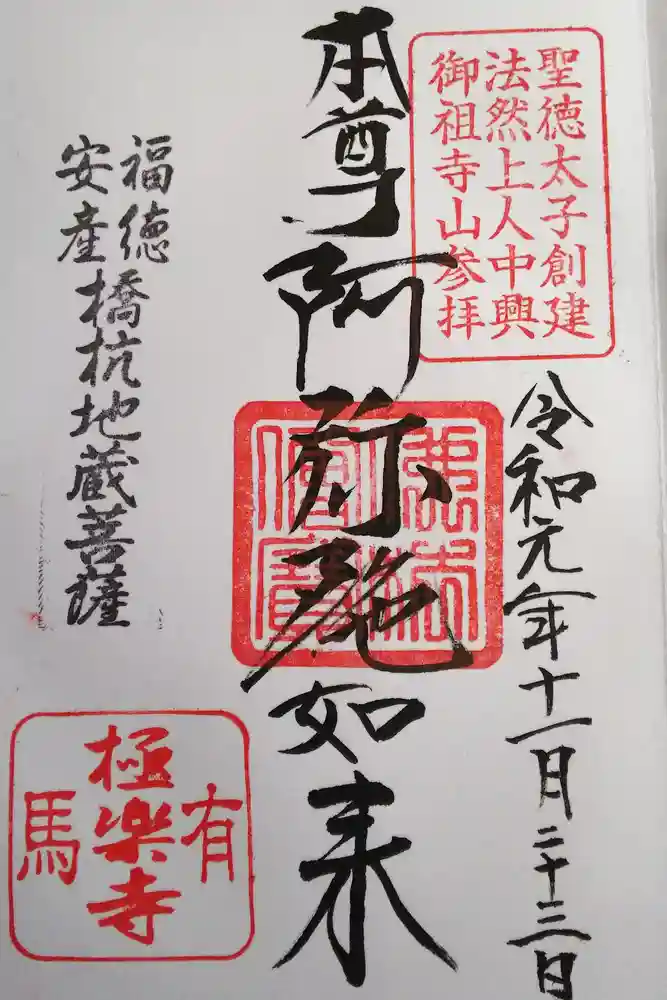 聖徳太子創建
法然上人中興
御祖寺山参拝
令和元年十一月二十三日
本尊阿弥陀如来
佛法僧寶
福徳
安産
橋杭地蔵菩薩
有馬
極楽寺